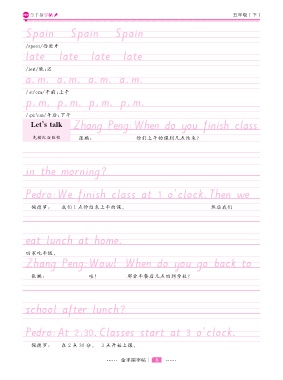 五年级（下）
Spain Spain Spain
/speɪn/西班牙
late late late late
/leɪt/晚;迟
a.m. a.m. a.m. a.m.
/ˌeɪˈem/午前;上午
p.m. p.m. p.m. p.m.
/ˌpiːˈem/午后;下午
Let's talk Zhang Peng: When do you finish class
先描红后临写 张鹏： 你们上午的课到几点结束？
in the morning?
Pedro: We finish class at 1 o'clock. Then we
佩德罗： 我们1点钟结束上午的课。 然后我们
eat lunch at home.
回家吃午饭。
Zhang Peng: Wow! When do you go back to
张鹏： 哇！ 那你午餐后几点回到学校？
school after lunch?
Pedro: At 2:30. Classes start at 3 o'clock.
佩德罗： 在2点30分。 3点开始上课。